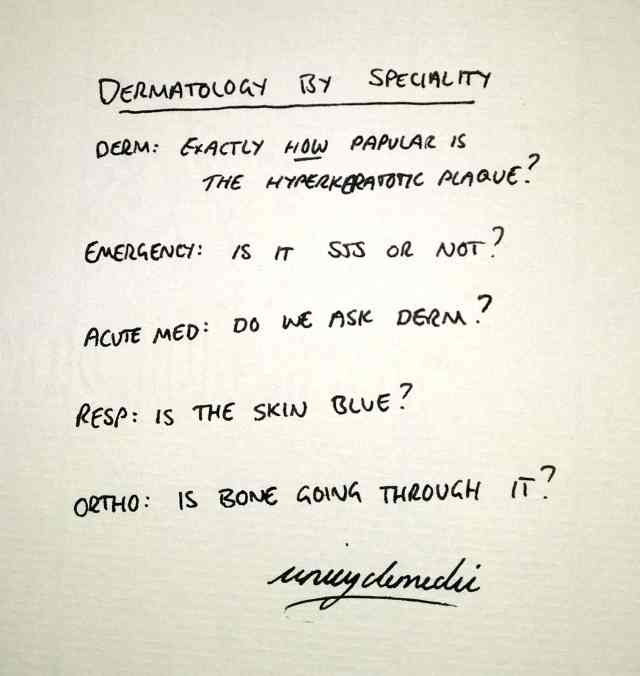 DERMATOLOGY BY SPECIALITY
DERM: EXACTLY HOW PAPULAR IS
THE HYPERKERATOTIC PLAQUE?
EMERGENCY: IS IT SJS OR NOT?
ACUTE MED: DO WE ASK DERM?
RESP: IS THE SKIN BLUE?
ORTHO: IS BONE GOING THROUGH IT?
unicyclemedic